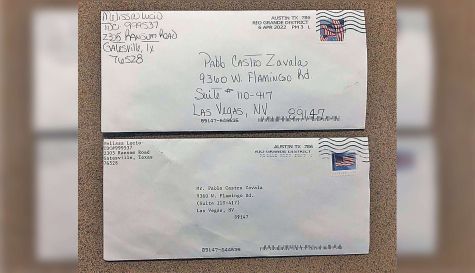 Melissa Lucio
TDCJ 999537
2305 Ransom Road
Gatesville, TX
76528
AUSTIN TX 786
RIO GRANDE DISTRICT
6 APR 2022 PM 3 L
Pablo Castro Zavala
9360 W. Flamingo Rd
Suite # 110-417
Las Vegas, NV 89147
89147-644636
Melissa Lucio
2305 Ransom Road
Gatesville, Texas
76528
AUSTIN TX 786
RIO GRANDE DISTRICT
Mr. Pablo Castro Zavala
9360 W. Flamingo Rd.
(Suite 110-417)
Las Vegas, NV
89147
89147-644636